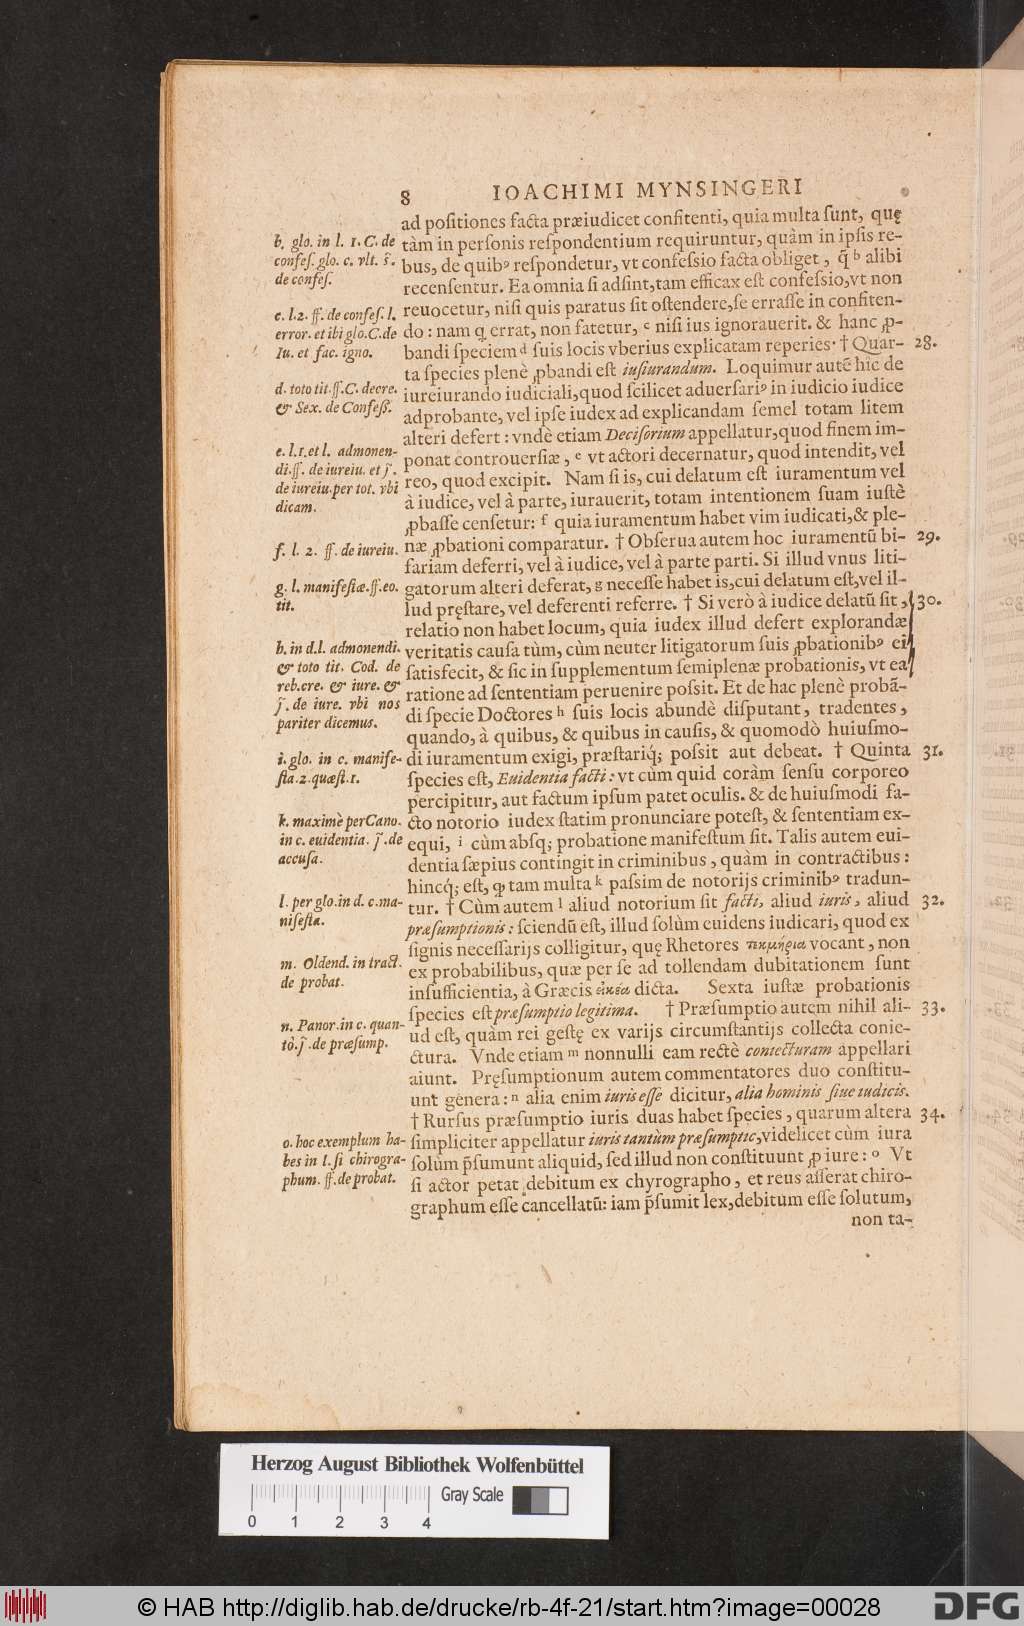 8 IOACHIMI MYNSINGERI
ad positiones facta præiudicet confitenti, quia multa sunt, quę
tàm in personis respondentium requiruntur, quàm in ipsis re-
bus, de quibꝰ respondetur, vt confessio facta obliget, q̃ b alibi
recensentur. Ea omnia si adsint, tam efficax est confessio, vt non
reuocetur, nisi quis paratus sit ostendere, se errasse in confiten-
do: nam q errat, non fatetur, c nisi ius ignorauerit. & hanc ꝓ-
bandi speciem d suis locis vberius explicatam reperies. † Quar-
ta species plenè ꝓbandi est iusiurandum. Loquimur autē hîc de
iureiurando iudiciali, quod scilicet aduersariꝰ in iudicio iudice
adprobante, vel ipse iudex ad explicandam semel totam litem
alteri defert: vndè etiam Decisorium appellatur, quod finem im-
ponat controuersiæ, e vt actori decernatur, quod intendit, vel
reo, quod excipit. Nam si is, cui delatum est iuramentum vel
à iudice, vel à parte, iurauerit, totam intentionem suam iustè
ꝓbasse censetur: f quia iuramentum habet vim iudicati, & ple-
næ ꝓbationi comparatur. † Obserua autem hoc iuramentū bi-
fariam deferri, vel à iudice, vel à parte parti. Si illud vnus liti-
gatorum alteri deferat, g necesse habet is, cui delatum est, vel il-
lud pręstare, vel deferenti referre. † Si verò à iudice delatū sit,
relatio non habet locum, quia iudex illud defert explorandæ
veritatis causa tùm, cùm neuter litigatorum suis ꝓbationibꝰ ei
satisfecit, & sic in supplementum semiplenæ probationis, vt ea
ratione ad sententiam peruenire possit. Et de hac plenè probā-
di specie Doctores h suis locis abundè disputant, tradentes,
quando, à quibus, & quibus in causis, & quomodò huiusmo-
di iuramentum exigi, præstariq́; possit aut debeat. † Quinta
species est, Euidentia facti: vt cùm quid coràm sensu corporeo
percipitur, aut factum ipsum patet oculis. & de huiusmodi fa-
cto notorio iudex statim pronunciare potest, & sententiam ex-
equi, i cùm absq; probatione manifestum sit. Talis autem eui-
dentia sæpius contingit in criminibus, quàm in contractibus:
hincq́; est, ꝙ tam multa k passim de notorijs criminibꝰ tradun-
tur. † Cùm autem l aliud notorium sit facti, aliud iuris, aliud
præsumptionis: sciendū est, illud solùm euidens iudicari, quod ex
signis necessarijs colligitur, quę Rhetores τεκμήρια vocant, non
ex probabilibus, quæ per se ad tollendam dubitationem sunt
insufficientia, à Græcis εἰκότα dicta. Sexta iustæ probationis
species est præsumptio legitima. † Præsumptio autem nihil ali-
ud est, quàm rei gestę ex varijs circumstantijs collecta conie-
ctura. Vnde etiam m nonnulli eam rectè coniecturam appellari
aiunt. Pręsumptionum autem commentatores duo constitu-
unt genera: n alia enim iuris esse dicitur, alia hominis siue iudicis.
† Rursus præsumptio iuris duas habet species, quarum altera
simpliciter appellatur iuris tantùm præsumptio, videlicet cùm iura
solùm p̄sumunt aliquid, sed illud non constituunt ꝓ iure: o Vt
si actor petat debitum ex chyrographo, et reus asserat chiro-
graphum esse cancellatū: iam p̄sumit lex, debitum esse solutum,
non ta-
b. glo. in l. 1. C. de
confes. glo. c. vlt. ß.
de confes.
c. l.2. ff. de confes. l.
error. et ibi glo. C. de
Iu. et fac. igno.
d. toto tit. ff. C. decre.
& Sex. de Confess.
e. l.1. et l. admonen-
di. ff. de iureiu. et j̃.
de iureiu. per tot. vbi
dicam.
f. l. 2. ff. de iureiu.
g. l. manifestæ. ff. eo.
tit.
h. in d.l. admonendi.
& toto tit. Cod. de
reb. cre. & iure. &
j̃. de iure. vbi nos
pariter dicemus.
i. glo. in c. manife-
sta. 2. quæst. 1.
k. maximè per Cano.
in c. euidentia. j̃. de
accusa.
l. per glo. in d. c. ma-
nifesta.
m. Oldend. in tract.
de probat.
n. Panor. in c. quan-
tò. j̃. de præsump.
o. hoc exemplum ha-
bes in l. si chirogra-
phum. ff. de probat.
28.
29.
30.
31.
32.
33.
34.
Herzog August Bibliothek Wolfenbüttel
Gray Scale
0 1 2 3 4
© HAB http://diglib.hab.de/drucke/rb-4f-21/start.htm?image=00028
DFG